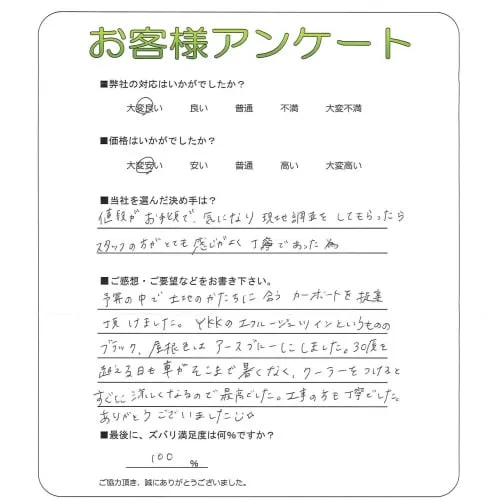 お客様アンケート
■弊社の対応はいかがでしたか?
大変良い 良い 普通 不満 大変不満
■価格はいかがでしたか?
大変安い 安い 普通 高い 大変高い
■当社を選んだ決め手は?
値段がお手頃で、気になり現地調査をしてもらったら
スタッフの方がとても感じがよく丁寧であった為
■ご感想・ご要望などをお書き下さい。
予算の中で土地のかたちに合うカーポートを提案
頂けました。YKKのエフルージュツインというものの
ブラック、屋根色はアースブルーにしました。30度を
超える日も車がそこまで暑くなく、クーラーをつけると
すぐに涼しくなるので最高でした。工事の方も丁寧でした。
ありがとうございました
■最後に、ズバリ満足度は何%ですか?
100 %
ご協力頂き、誠にありがとうございました。